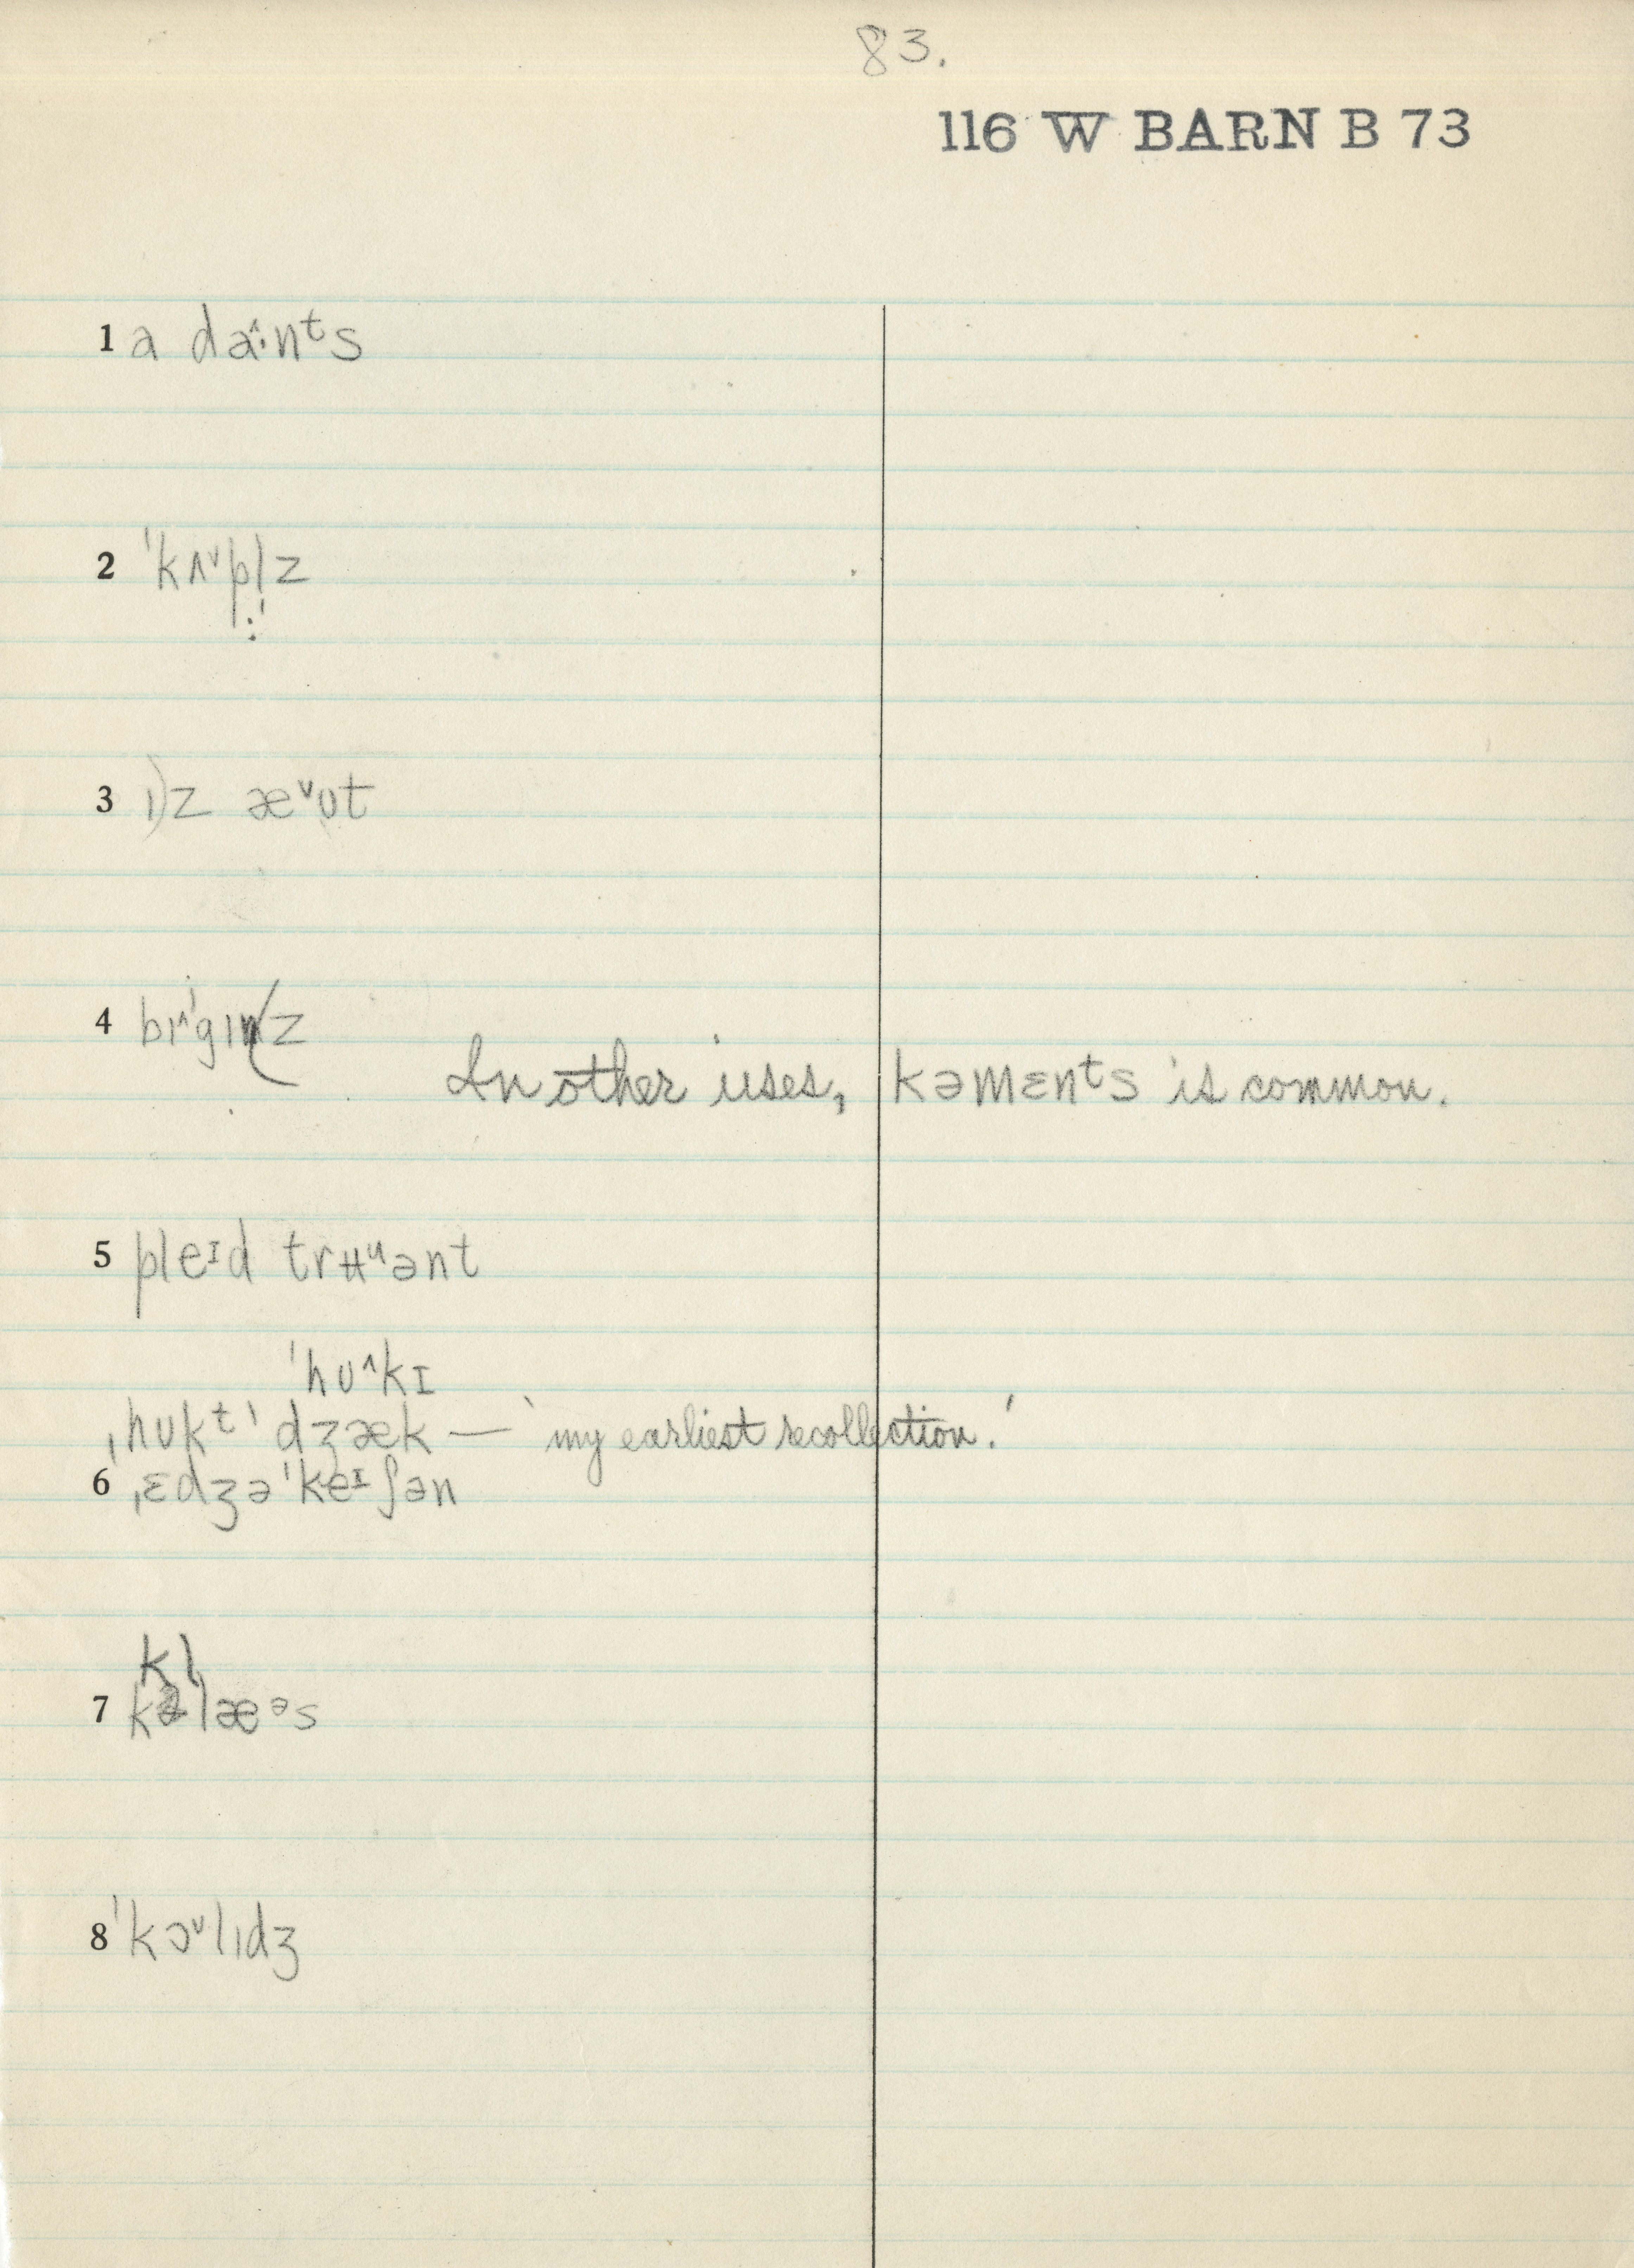 83.
116 W BARN B 73
1 a da^:nᵗs
2 ˈkʌᵛpl̩z
3 ɪ)z æᵛʊt
4 bɪ^ˈgɪnz
In other uses, kəmɛnᵗs is common.
5 pleᴵd trʉᵘənt
ˈhʊ^kɪ
ˌhʊkᵗˈdʒæk — 'my earliest recollection.'
6 ˌɛdʒəˈkeᴵʃən
kl
7 kəlæᵊs
8 ˈkɔᵛlɪdʒ